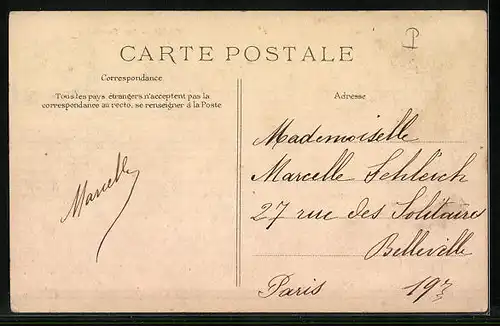 CARTE POSTALE
Correspondance
Tous les pays étrangers n'acceptent pas la
correspondance au recto, se renseigner à la Poste
Adresse
Marcelle
Mademoiselle
Marcelle Schleich
27 rue des Solitaires
Belleville
Paris 19